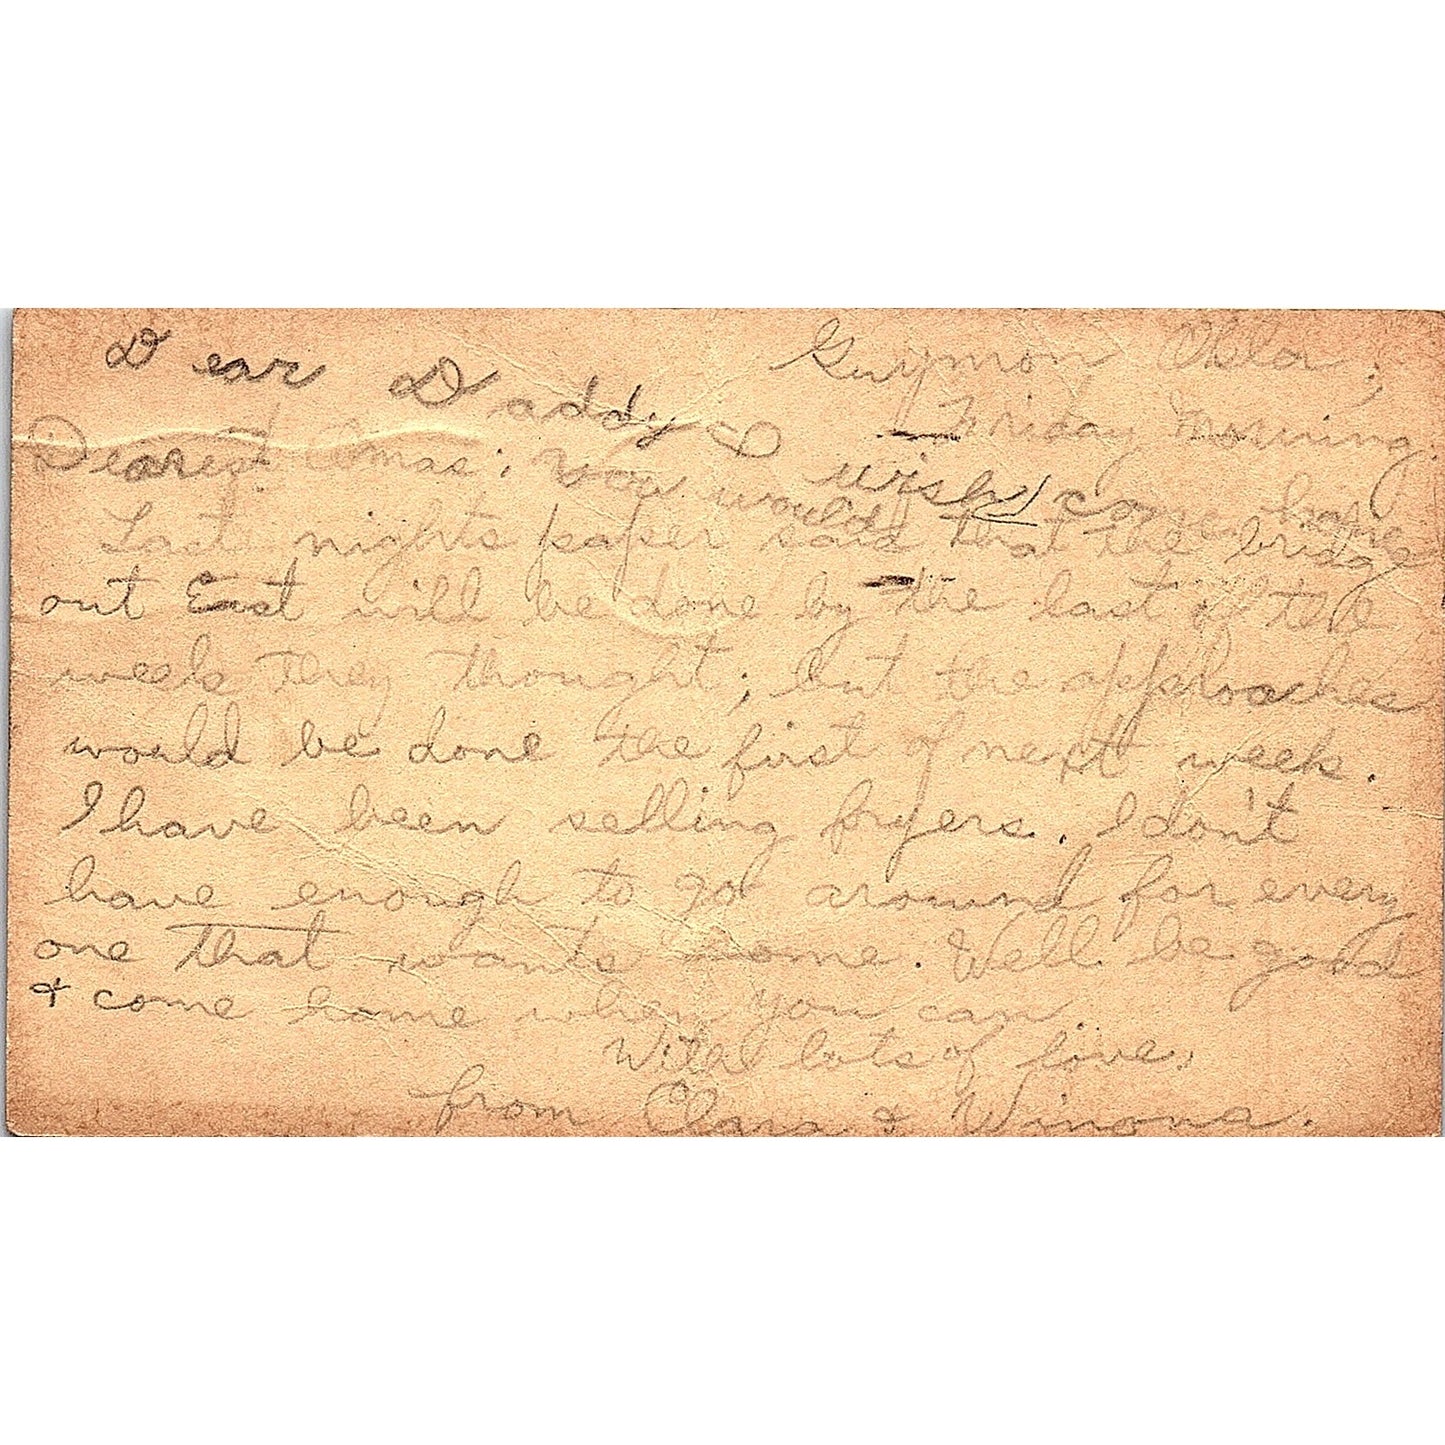 Guymon Okla.,
Friday Morning.
Dear Daddy I wish
you would come home
Dearest Omas:
Last nights paper said that the bridge
out East will be done by the last of the
week they thought; but the approaches
would be done the first of next week.
I have been selling fryers. I don't
have enough to go around for every
one that wants some. Well be good
& come home when you can.
With lots of love,
from Clara & Winona.